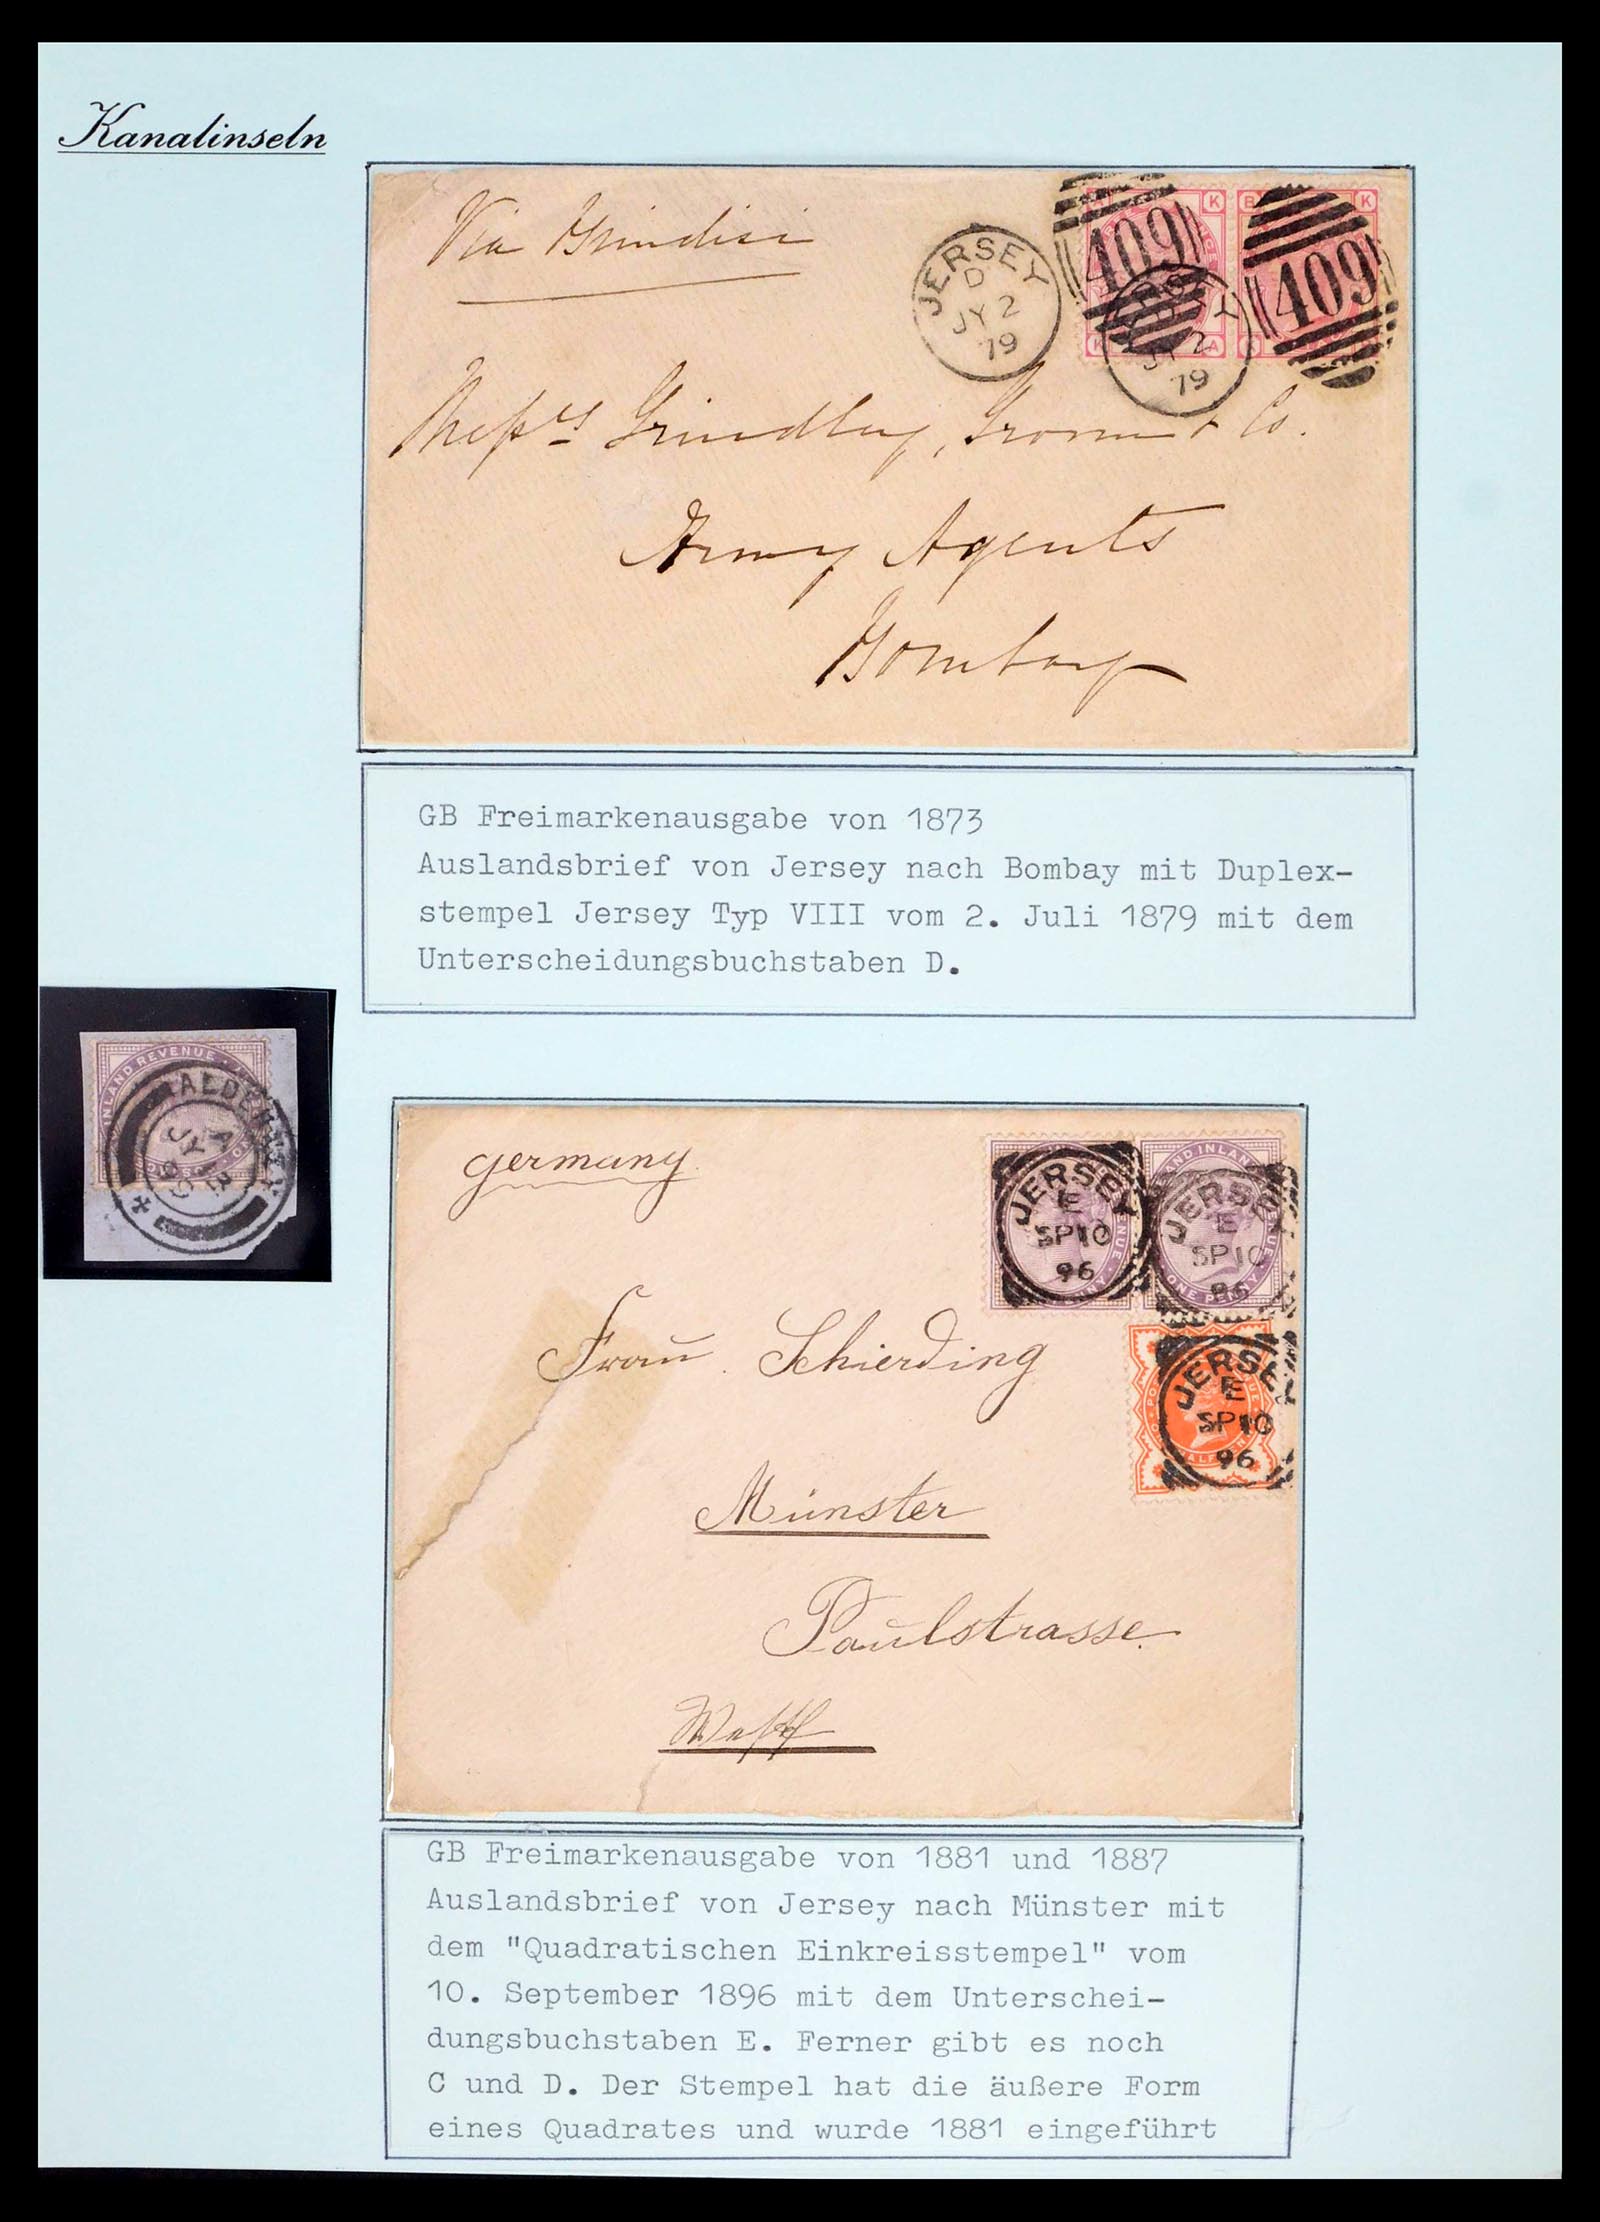 Kanalinseln
Via Brindisi
JERSEY
D
JY 2
79
409
409
K
B
K
JY 2
79
K
A
Messrs Grindlay, Groom & Co.
Army Agents
Bombay
GB Freimarkenausgabe von 1873
Auslandsbrief von Jersey nach Bombay mit Duplex-
stempel Jersey Typ VIII vom 2. Juli 1879 mit dem
Unterscheidungsbuchstaben D.
INLAND REVENUE
ALDERNEY
A
JY
germany.
JERSEY
E
SP 10
96
JERSEY
E
SP 10
96
ONE PENNY
JERSEY
E
SP 10
96
Frau Schierding
Münster
Paulstrasse.
Westf
GB Freimarkenausgabe von 1881 und 1887
Auslandsbrief von Jersey nach Münster mit
dem "Quadratischen Einkreisstempel" vom
10. September 1896 mit dem Unterschei-
dungsbuchstaben E. Ferner gibt es noch
C und D. Der Stempel hat die äußere Form
eines Quadrates und wurde 1881 eingeführt